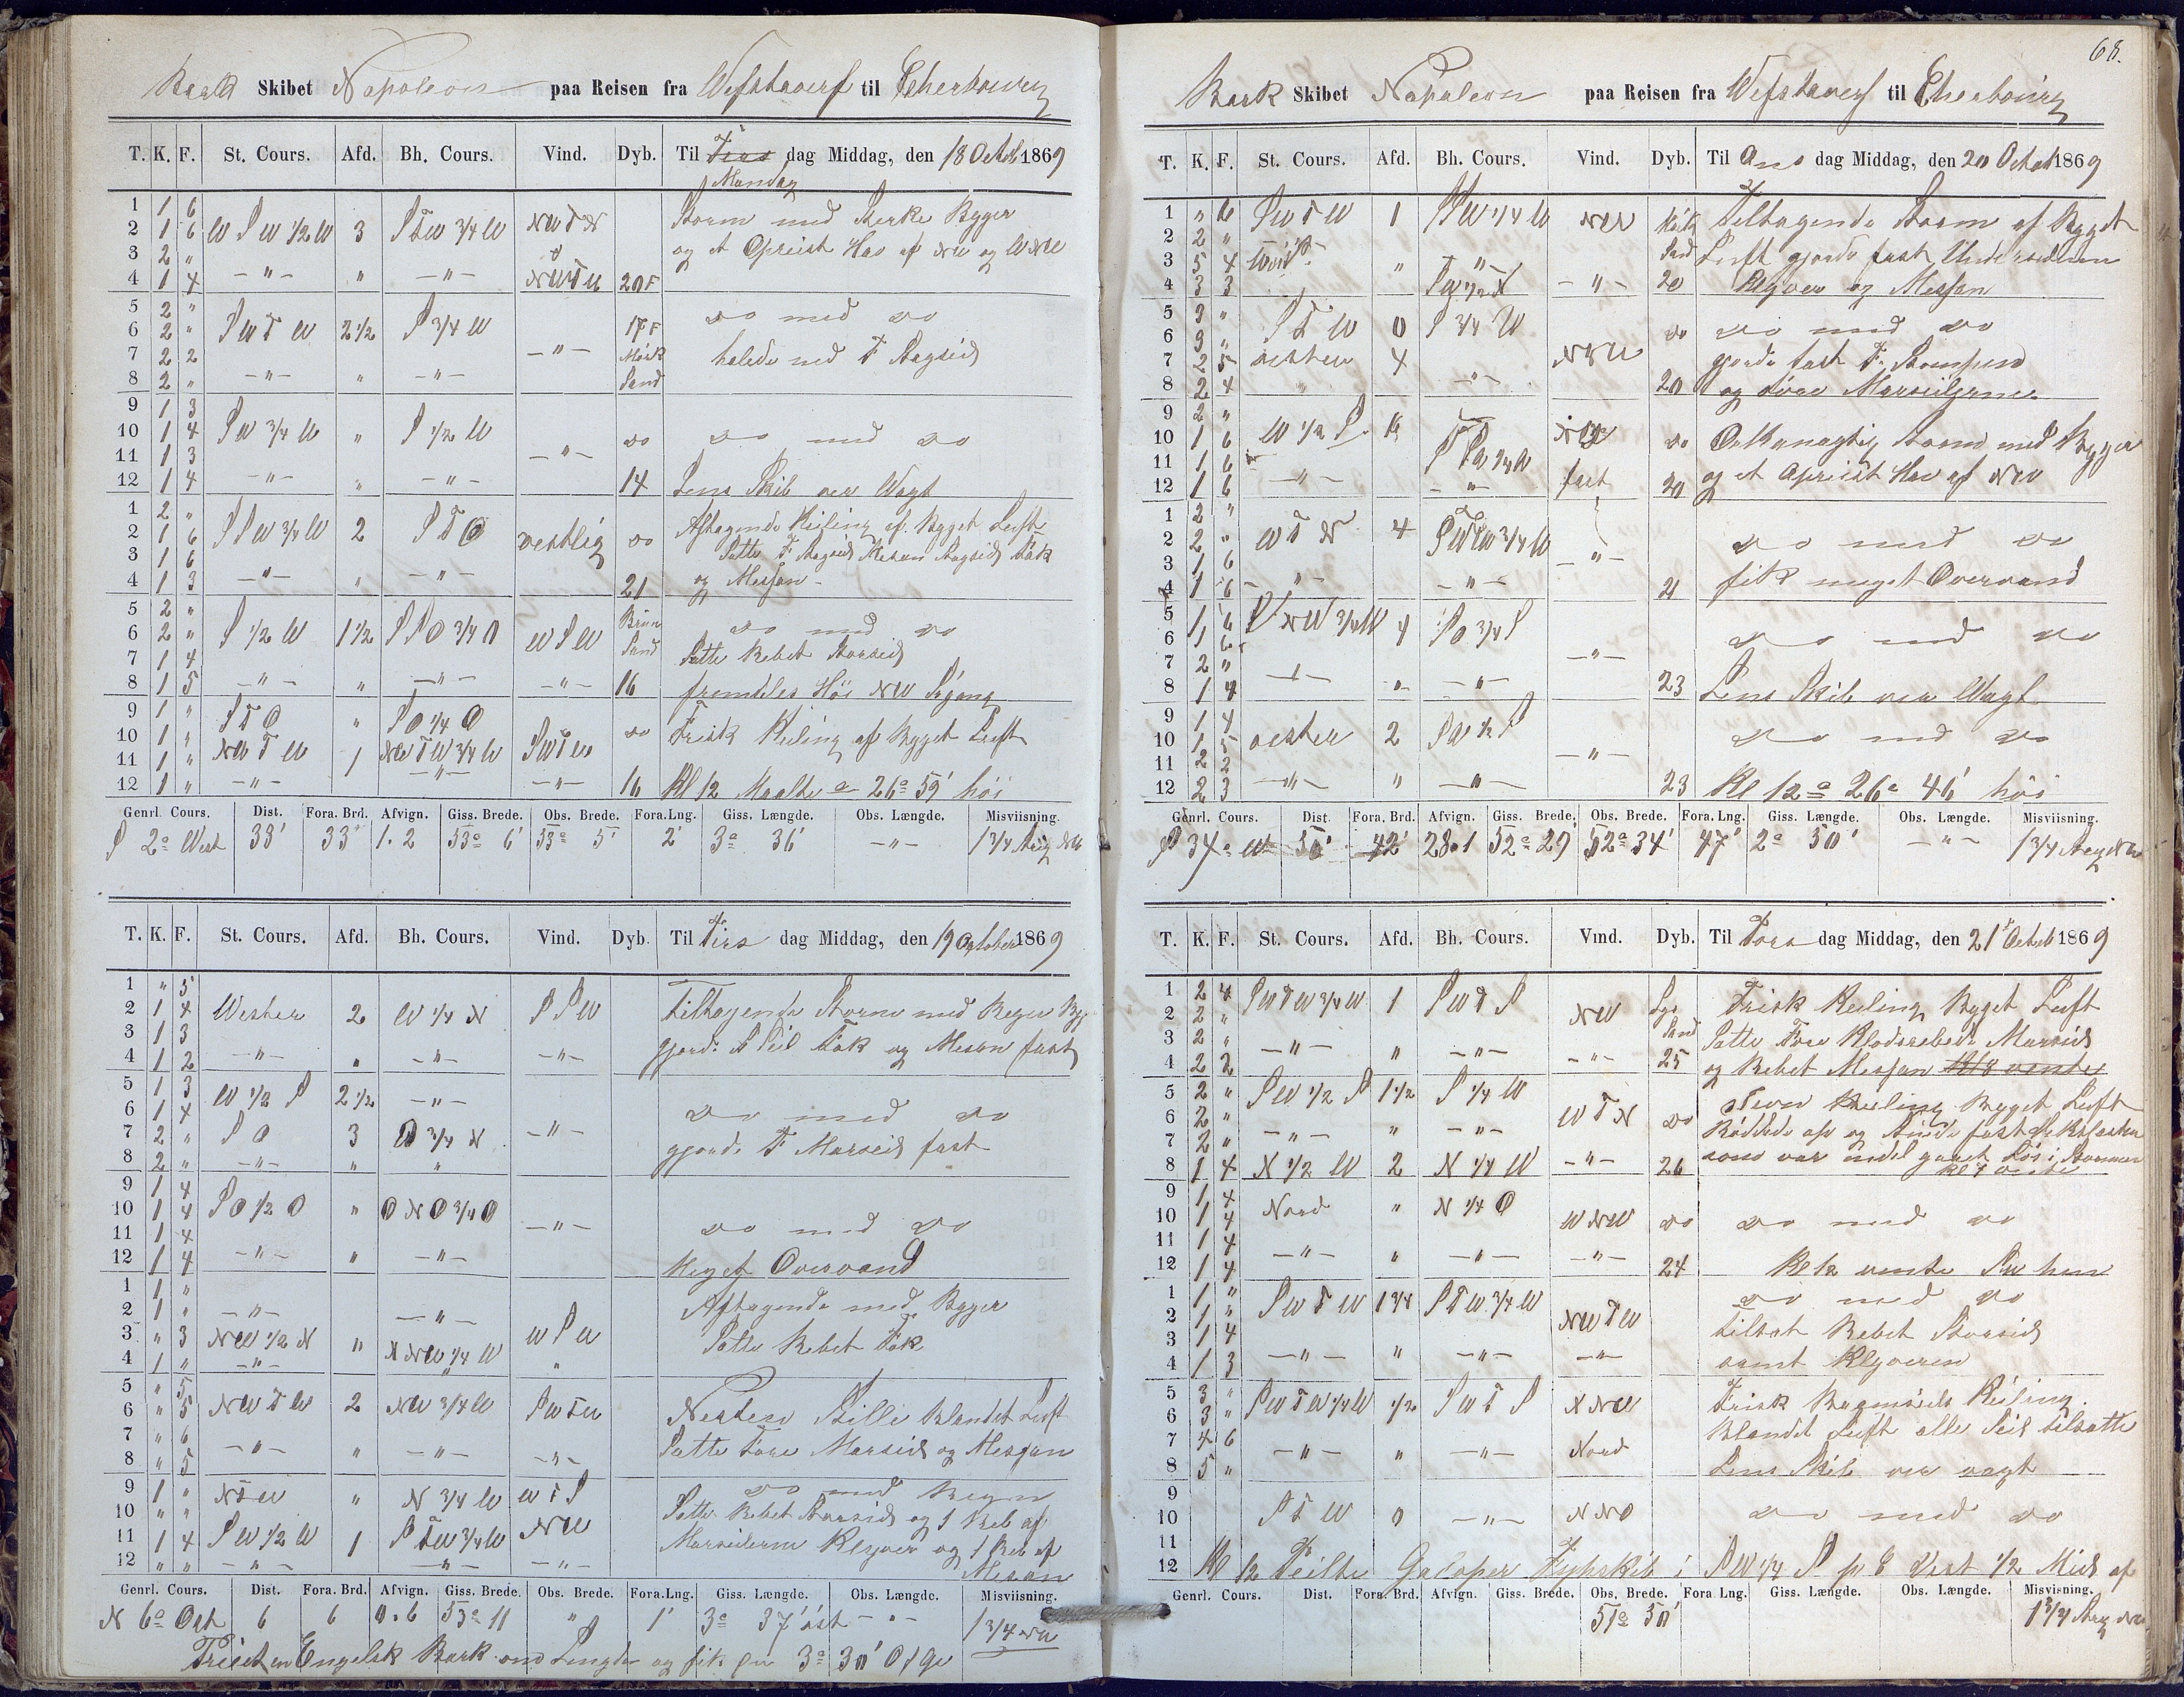 Bark Skibet Napoleon paa Reisen fra Wefstaverf til Cherbourg
T. K. F. St. Cours. Afd. Bh. Cours. Vind. Dyb. Til Tirs dag Middag, den 18 Octob 1869
Mandag
1 1 6
2 1 6 W S W 1/2 W 3 S T W 3/4 W NW T N
3 2 "
4 1 4 - " - " - " - NW T W 20 F
Storm med Sterke Byger
og et Opriist Hav af NW og WNW
5 2 "
6 2 " S W T W 2 1/2 S 3/4 W 17 F
7 2 2 - " - Mörk
8 2 " - " - " - " - Sand
do med do
halede ned F Stagseil
9 1 3
10 1 4 S W 3/4 W " S 1/2 W do
11 1 3 - " -
12 1 4 - " - " - " - 14
do med do
Lens Skib ver Wagt
1 2 "
2 1 6 S S W 3/4 W 2 S T O vestlig do
3 1 6
4 1 3 - " - " - " - 21
Aftagende Keiling af Byget Luft
Satte F Stagseil Mesan Stagseil Fok
og Mesjan
5 2 "
6 2 " S 1/2 W 1 1/2 S S O 3/4 O W S W Brun
7 1 4 Sand
8 1 5 - " - " - " - - " - 16
do med do
Satte Rebet Storseil
fremdeles Höi NW Sögang
9 1 " S T O " S O 1/4 O do
10 1 " NW T W NW T W 3/4 W S W T W
11 1 " 1 - " -
12 1 " - " - - " - 16
Frisk Keiling af Byget Luft
Kl 12 Maalte a 26° 59' höi
Genrl. Cours. Dist. Fora. Brd. Afvign. Giss. Brede. Obs. Brede. Fora. Lng. Giss. Længde. Obs. Længde. Misviisning.
S 2° West 33' 33' 1.2 53° 6' 53° 5' 2' 3° 36' - " - 1 3/4 Streg NW
T. K. F. St. Cours. Afd. Bh. Cours. Vind. Dyb. Til Tirs dag Middag, den 19 October 1869
1 " 5
2 1 4 Wester 2 W 1/4 N S S W
3 1 3
4 1 2 - " - " - " - - " -
Tiltagende Storm med Regn Byg
gjorde S Seil Fok og Mesan fast
5 1 3 W 1/2 S 2 1/2 - " -
6 1 4
7 2 " S O 3 O 3/4 N - " -
8 2 " - " - " "
do med do
gjorde F Marseil fast
9 1 4
10 1 4 S O 1/2 O " O N O 3/4 O
11 1 4 - " -
12 1 4 - " - " - " -
do med do
Meget Overvand
1 1 "
2 1 " - " - - " -
3 " 3 NW 1/2 N " N NW 1/4 W W S W
4 1 " - " - " "
Aftagende med Byger
Satte Rebet Fok
5 " 5
6 " 5 NW T W 2 NW 3/4 W S W T W
7 " 6
8 " 5 - " - " - " - - " -
Nesten Stille Blandet Luft
Satte Fore Marseil og Mesjan
9 1 " N T W " N 3/4 W W T S
10 " "
11 1 4 S W 1/2 W 1 S T W 3/4 W NW
12 " " - " - - " - - " -
do med Regn
Satte Rebet Storseil og 1 Reb af
Marseilerne Klyver og 1 Reb af
Mesan
Genrl. Cours. Dist. Fora. Brd. Afvign. Giss. Brede. Obs. Brede. Fora. Lng. Giss. Længde. Obs. Længde. Misviisning.
N 6° Ost 6 6 0.6 53° 11 " 1' 3° 37' öst - " - 1 3/4 NW
Preiet en Engelsk Bark om Lengde og fik pr 3° 30' O f Gr
68.
Bark Skibet Napoleon paa Reisen fra Wefstaverf til Cherbourg
T. K. F. St. Cours. Afd. Bh. Cours. Vind. Dyb. Til Ons dag Middag, den 20 Octob 1869
1 " 6 S W T W 1 S W 1/4 W NW Mörk
2 2 " Sand
3 5 4 " - " -
4 3 3 S W 1/2 S - " - 20
Tiltagende Storm af Byget
Luft gjorde fast Underseilene
Klyver og Mesjan
5 3 "
6 3 " S T W 0 S 3/4 W do
7 2 5 vester 4 NNW
8 2 4 " - " - 20
do med do
gjorde fast F. Stompen
og store Marseilerne
9 2 "
10 1 6 W 1/2 S do
11 1 6
12 1 6 - " - - " - fast 20
Orkanagtig Storm med Byger
og et Opriist Hav af NW
1 2 "
2 2 " W T N 4 S W T W 3/4 W
3 1 6 - " -
4 1 6 - " - - " - 21
do med do
fik meget Overvand
5 1 6 NW 3/4 W 4 S O 3/4 S
6 1 6
7 2 " - " -
8 1 4 - " - " - " - 23
do med do
Lens Skib ver Wagt
9 1 4
10 1 5 vester 2 S W 1/2 S
11 2 2 - " -
12 2 3 - " - " - " - 23
do med do
Kl 12 a 26° 46' höi
Genrl. Cours. Dist. Fora. Brd. Afvign. Giss. Brede. Obs. Brede. Fora. Lng. Giss. Længde. Obs. Længde. Misviisning.
S 34° W 50' 42' 28.1 52° 29' 52° 34' 47' 2° 50' - " - 1 3/4 Streg NW
T. K. F. St. Cours. Afd. Bh. Cours. Vind. Dyb. Til Tors dag Middag, den 21 Octob 1869
1 2 4 S W T W 3/4 W 1 S W T S NW Lys
2 2 " Sand
3 2 "
4 2 2 - " - " - " - - " - 25
Frisk Keiling Byget Luft
Satte Fore Klodsrebede Marseil
og Rebet Mesjan Kl 8 vente
5 2 " S W 1/2 S 1 1/2 S 1/4 W
6 2 " W T N do
7 2 " - " - " - " -
8 1 4 N 1/2 W 2 N 1/4 W - " - 26
Keiling Byget Luft
Röddede op og
som var endel gaaet Lös i Stormen
Kl 7 vente
9 1 4
10 1 4 Nord " N 1/4 O W NW do
11 1 4
12 1 4 - " - " - " - - " - 24
do med do
Kl 12 vente SW hen
1 1 "
2 1 " S W T W 1 3/4 S T W 3/4 W NW T W
3 1 4
4 1 3 - " - " - " - - " -
do med do
tilsat Rebet Storseil
samt Klyveren
5 3 "
6 3 " S W T W 1/4 W 1/2 S W T S N NW
7 4 6
8 5 " - " - " - " - Nord
Frisk Bagmseils Keiling
Blandet Luft alle Seil tilsatte
Lens Skib ver vagt
9
10 S T W 0 - " - N NO
11
do med do
12 Kl 12 Peilte Galoper Fyhrskib i S W 1/4 S p C Dist 1/2 Miil af
Genrl. Cours. Dist. Fora. Brd. Afvign. Giss. Brede. Obs. Brede. Fora Lng. Giss. Længde. Obs. Længde. Misvisning.
51° 50' 1 3/4 Streg NW